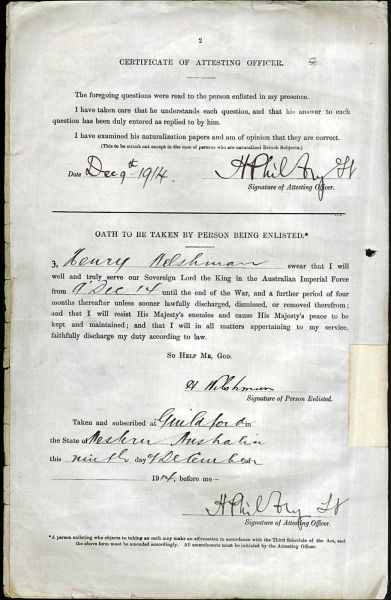 2
CERTIFICATE OF ATTESTING OFFICER.
The foregoing questions were read to the person enlisted in my presence.
I have taken care that he understands each question, and that his answer to each
question has been duly entered as replied to by him.
I have examined his naturalization papers and am of opinion that they are correct.
(This to be struck out except in the case of persons who are naturalized British Subjects.)
Date Dec 9th 1914.
Signature of Attesting Officer.
OATH TO BE TAKEN BY PERSON BEING ENLISTED.*
I, Henry Welshman swear that I will
well and truly serve our Sovereign Lord the King in the Australian Imperial Force
from 9 Dec 14 until the end of the War, and a further period of four
months thereafter unless sooner lawfully discharged, dismissed, or removed therefrom;
and that I will resist His Majesty's enemies and cause His Majesty's peace to be
kept and maintained; and that I will in all matters appertaining to my service,
faithfully discharge my duty according to law.
SO HELP ME, GOD.
H Welshman
Signature of Person Enlisted.
Taken and subscribed at Guildford in
the State of Western Australia
this ninth day of December
1914, before me—
Signature of Attesting Officer.
*A person enlisting who objects to taking an oath may make an affirmation in accordance with the Third Schedule of the Act, and
the above form must be amended accordingly. All amendments must be initialed by the Attesting Officer.